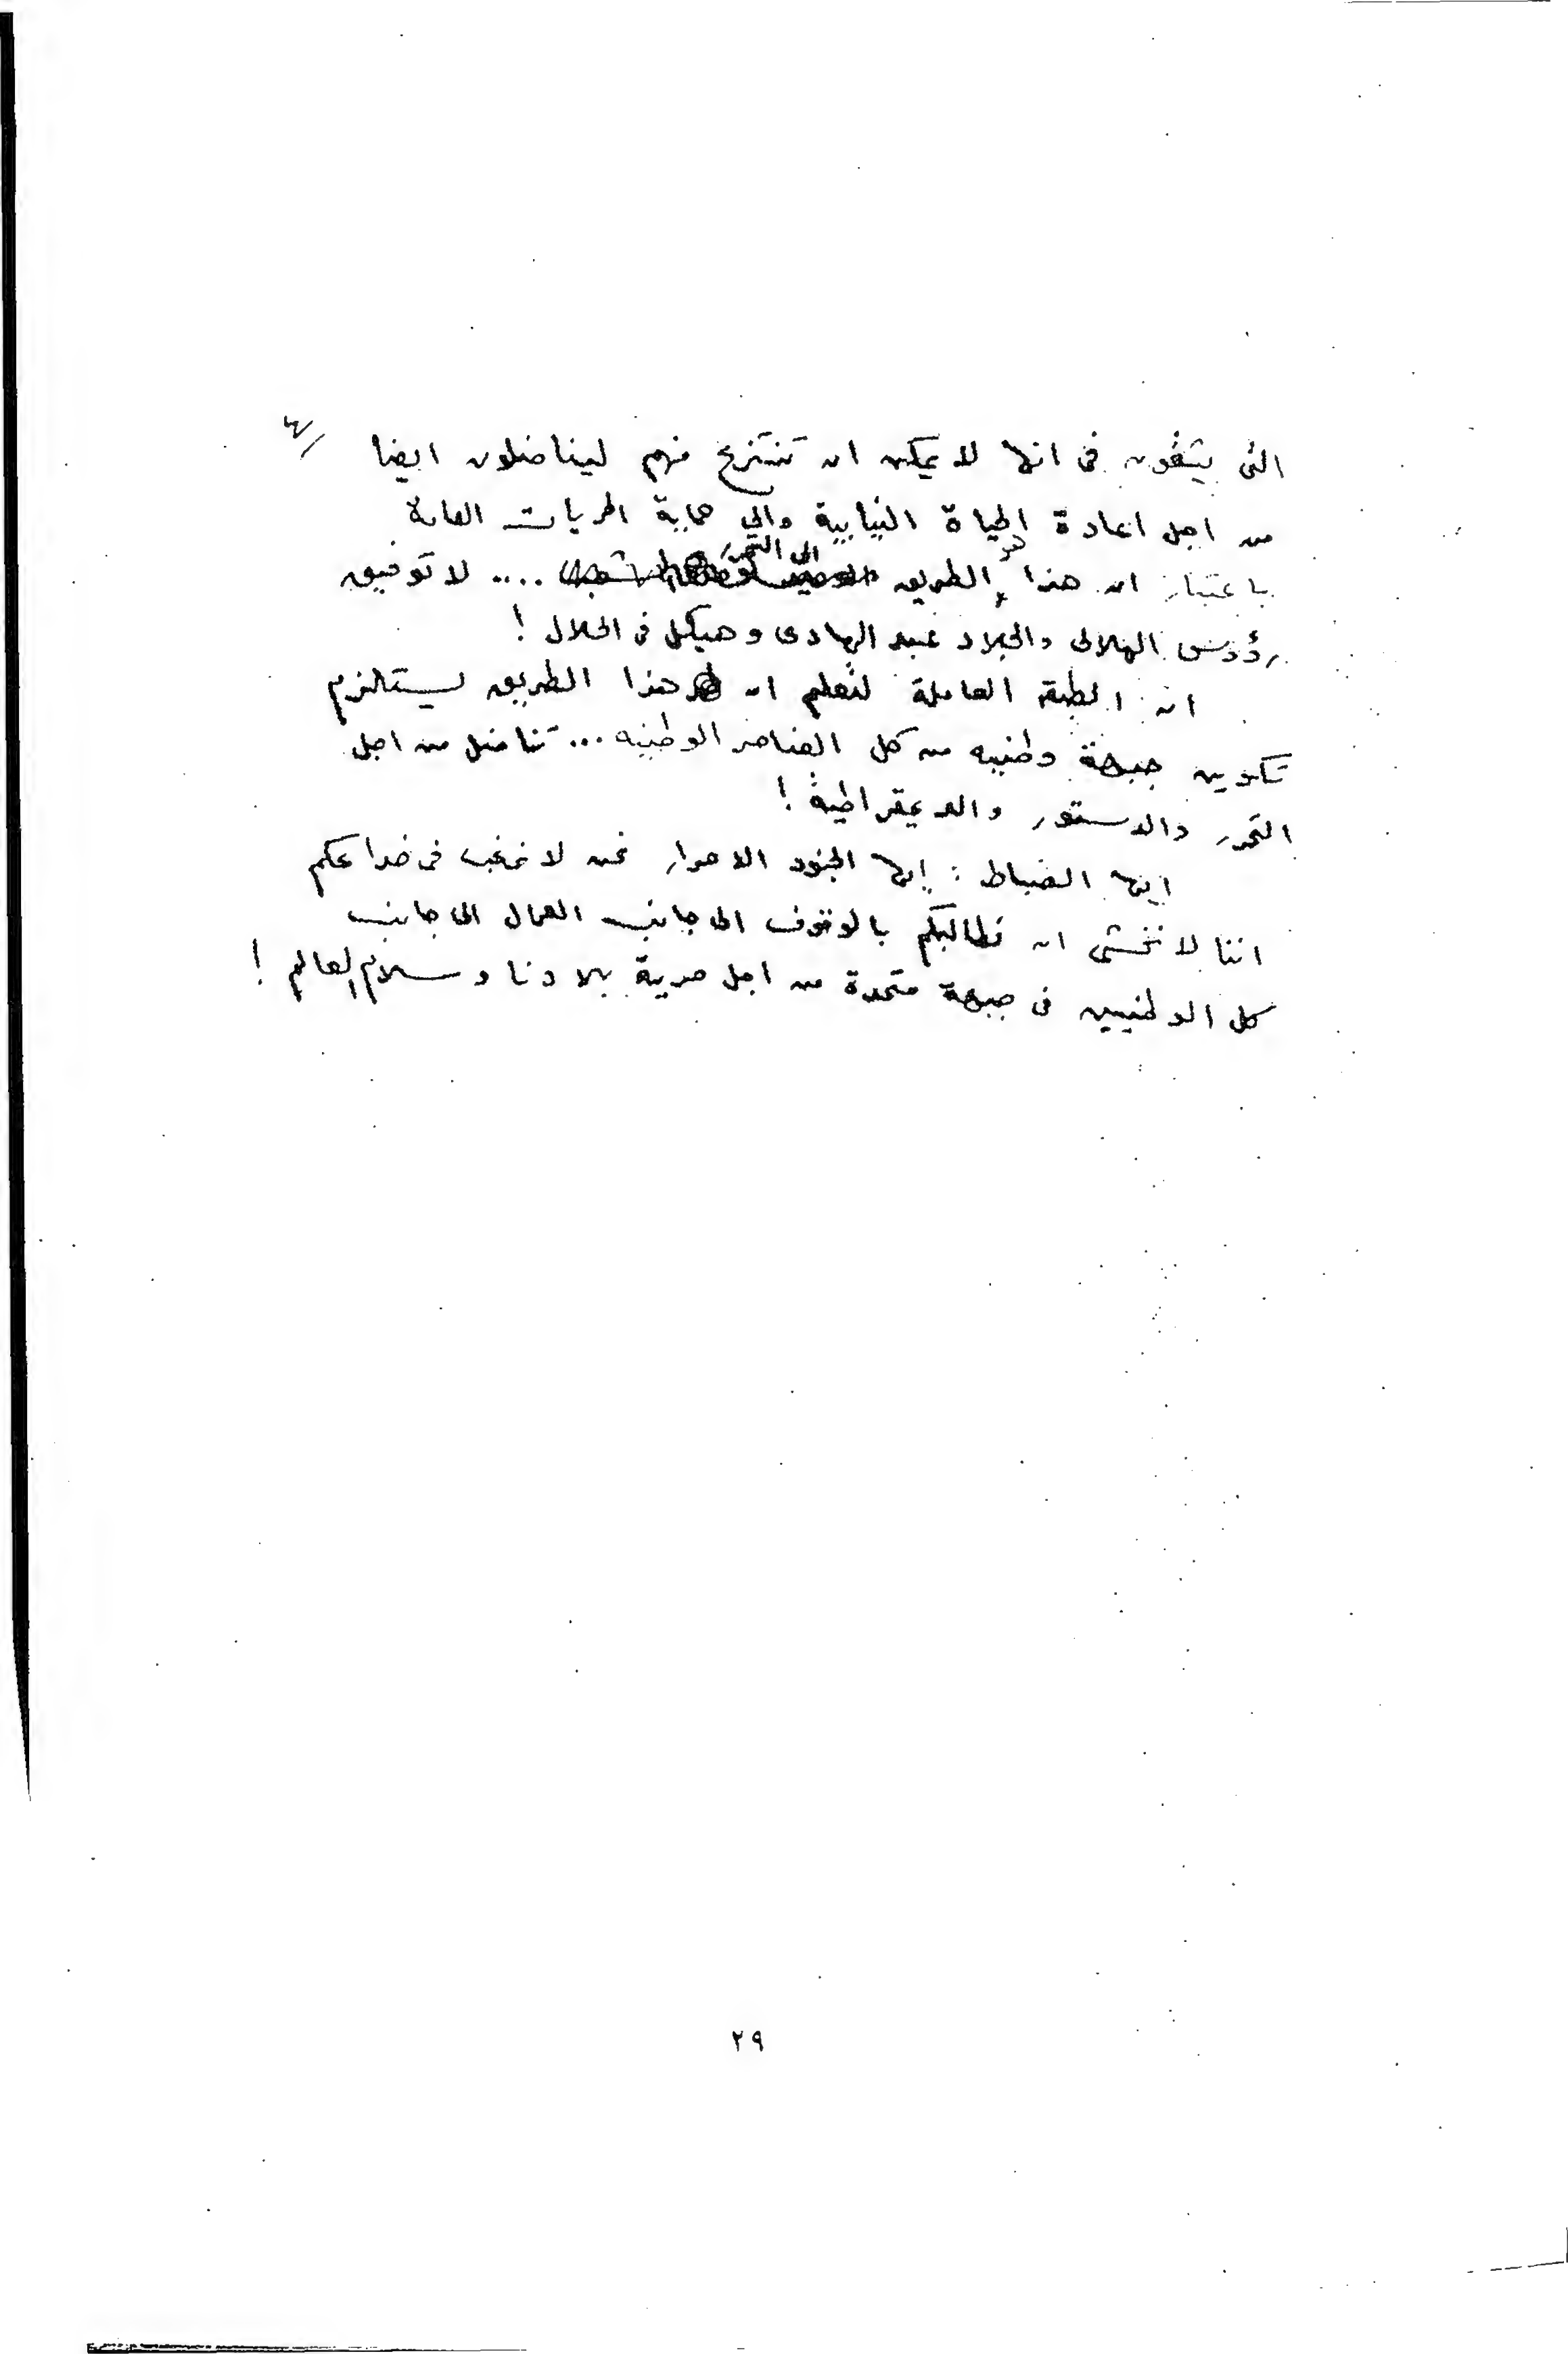 ٤/
التى يثقون فى انها لا يمكن ان تنتزع منهم ليناضلون ايضا
من اجل اعادة الحياة النيابية والى حماية الحريات العامة
باعتبار ان هذا هو الطريق الى التحرر .... لا توفيق
رؤوس الهلالى والجلاد عبد الهادى وهيكل فى الحلال !
ان الطبقة العاملة لتعلم ان هذا الطريق ليستلزم
تكوين جبهة وطنيه من كل العناصر الوطنيه ... تناضل من اجل
التحرر والدستور والديمقراطية !
ايها الضباط : إيها الجنود الاحرار نحن لا نرغب فى خداعكم
اننا لا نخشى ان نطالبكم بالوقوف الى جانب العمال الى جانب
كل الوطنيين فى جبهة متحدة من اجل حرية بلادنا وسلام العالم !
٢٩